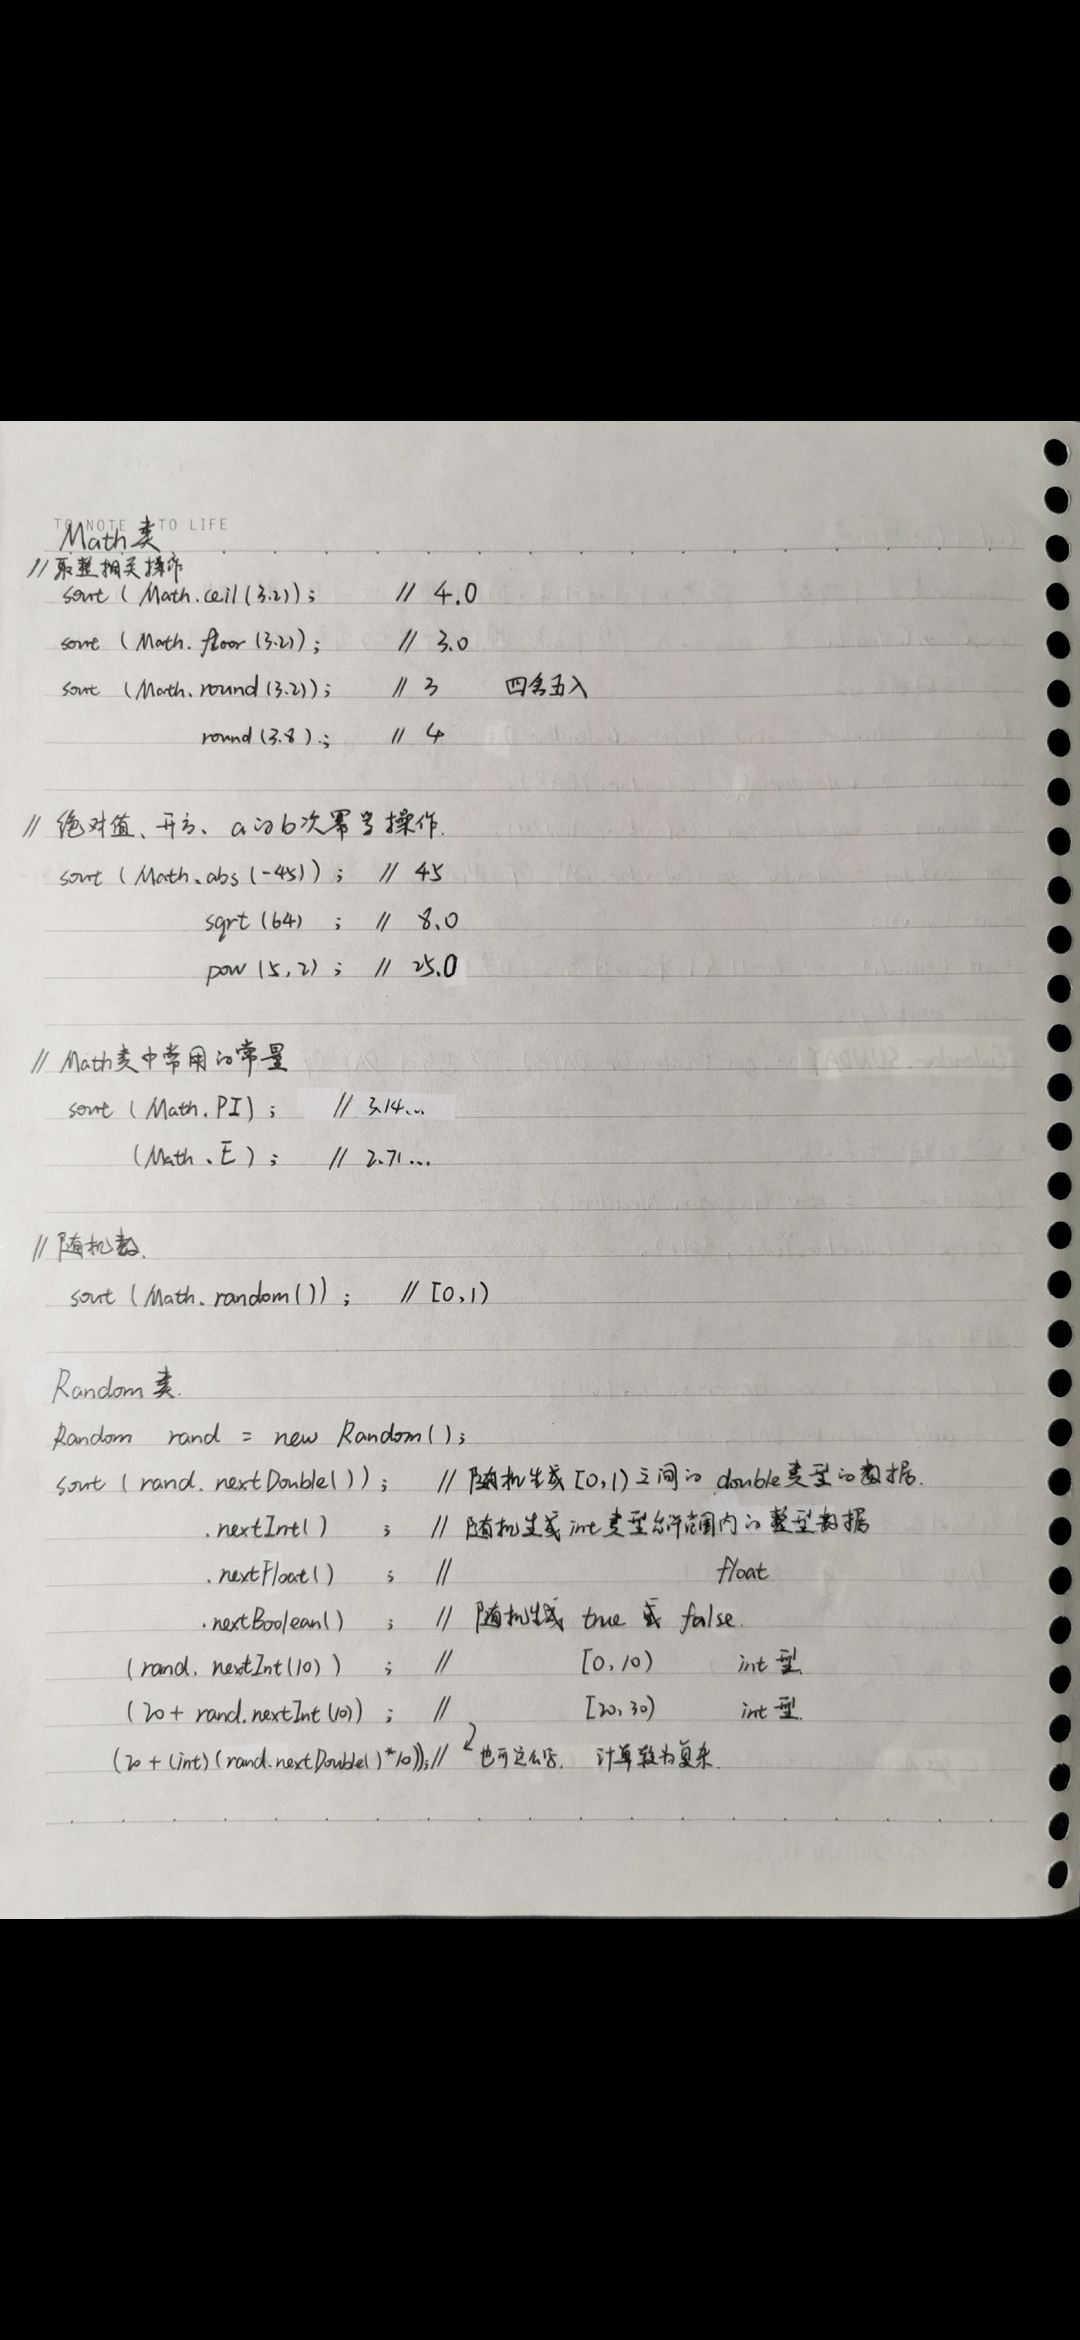 TO NOTE TO LIFE
Math类
//取整相关操作
sout (Math.ceil(3.2)); // 4.0
sout (Math.floor(3.2)); // 3.0
sout (Math.round(3.2)); // 3 四舍五入
round(3.8).; // 4
// 绝对值、开方、a的b次幂等操作.
sout (Math.abs(-45)); // 45
sqrt(64) ; // 8.0
pow(5,2) ; // 25.0
// Math类中常用的常量
sout (Math.PI); // 3.14...
(Math.E); // 2.71...
// 随机数.
sout (Math.random()); // [0,1)
Random类.
Random rand = new Random();
sout (rand.nextDouble()); // 随机生成[0,1)之间的double类型的数据.
.nextInt() ; // 随机生成int类型允许范围内的整型数据
.nextFloat() ; // float
.nextBoolean() ; // 随机生成 true 或 false.
(rand.nextInt(10)) ; // [0,10) int型.
(20+ rand.nextInt(10)) ; // [20,30) int型.
(20+(int)(rand.nextDouble()*10)); // 也可这么写. 计算较为复杂.